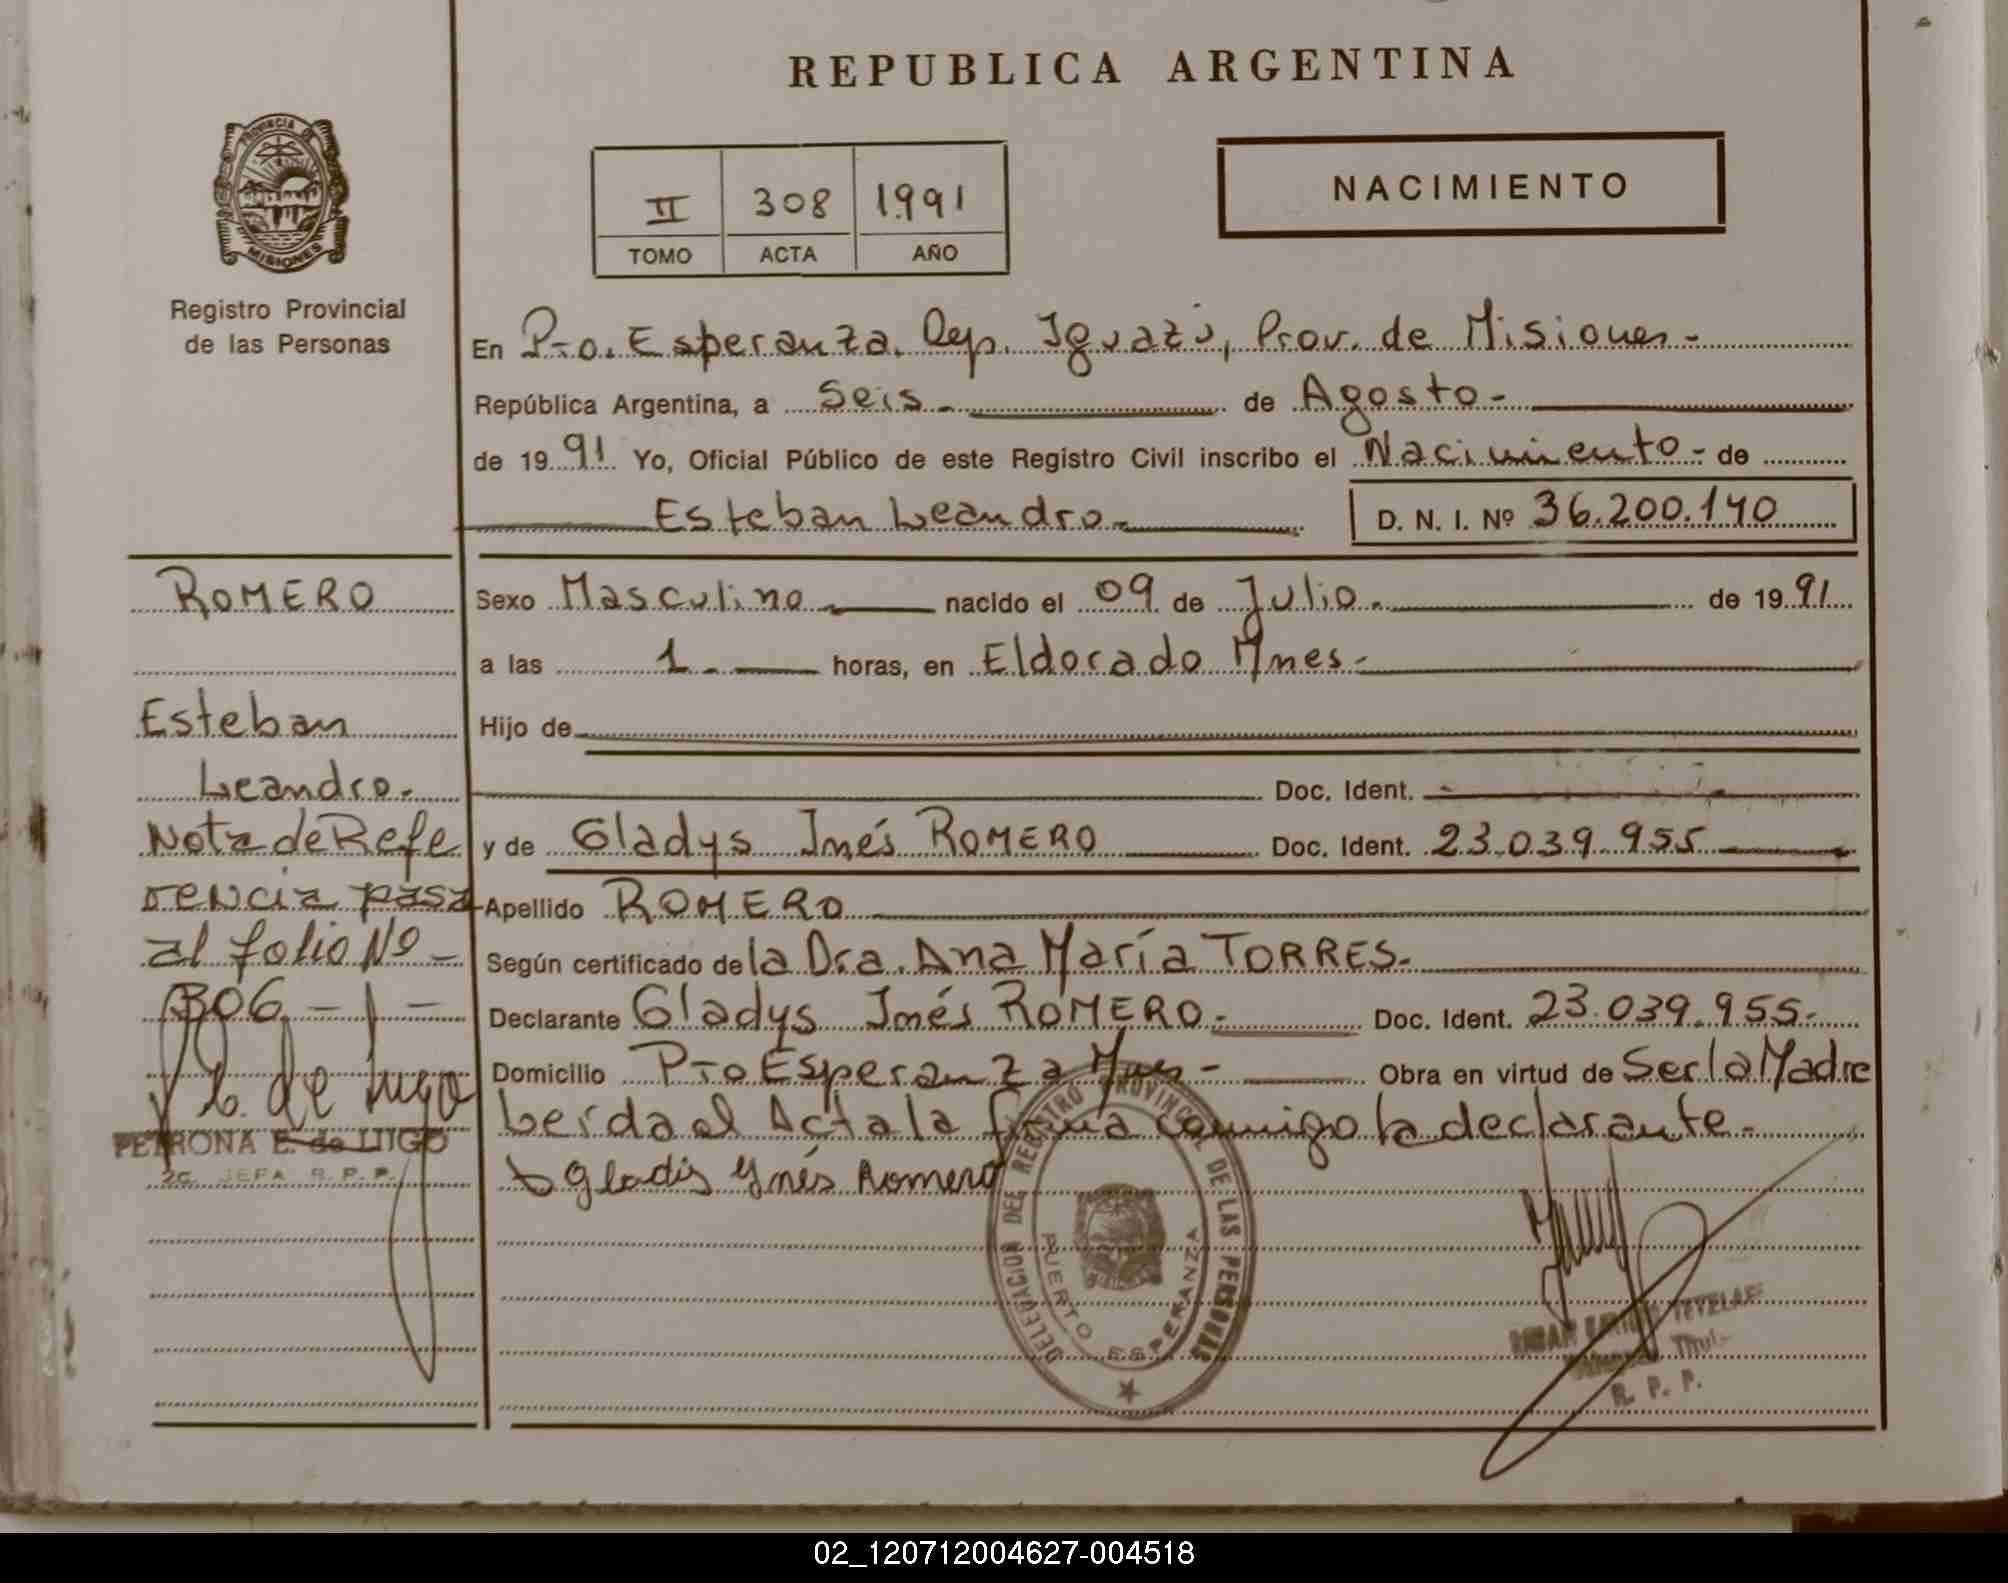 REPUBLICA ARGENTINA
PROVINCIA DE
MISIONES
Registro Provincial
de las Personas
II 308 1991
TOMO ACTA AÑO
NACIMIENTO
En Pto. Esperanza. Dep. Iguazú, Prov. de Misiones.-
República Argentina, a Seis.- de Agosto-
de 1991 Yo, Oficial Público de este Registro Civil inscribo el Nacimiento- de
Esteban Leandro.- D. N. I. Nº 36.200.140
ROMERO
Esteban
Leandro.-
Nota de Refe
rencia pasa
al folio Nº-
306.-1-
PETRONA E. de LUGO
2a. JEFA R. P. P.
Sexo Masculino nacido el 09 de Julio.- de 1991.
a las 1.- horas, en Eldorado Mnes.-
Hijo de
Doc. Ident. -
y de Gladys Inés ROMERO Doc. Ident. 23.039.955
Apellido ROMERO
Según certificado de la Dra. Ana María TORRES.-
Declarante Gladys Inés ROMERO.- Doc. Ident. 23.039.955.-
Domicilio Pto Esperanza Mnes- Obra en virtud de Ser la Madre
Leida el Acta la firma conmigo la declarante.-
Gladis Ynés Romero
DELEGACION DEL REGISTRO PROVINCIAL DE LAS PERSONAS
PUERTO ESPERANZA
R. P. P.
02_120712004627-004518